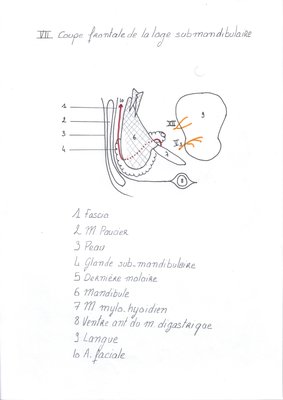 VII Coupe frontale de la loge submandibulaire
10
1
2
3
4
6
XII
9
V3
7
8
1 Fascia
2 M Paucier
3 Peau
4 Glande sub-mandibulaire
5 Dernière molaire
6 Mandibule
7 M mylo-hyoidien
8 Ventre ant do m digastrique
9 Langue
10 A. faciale